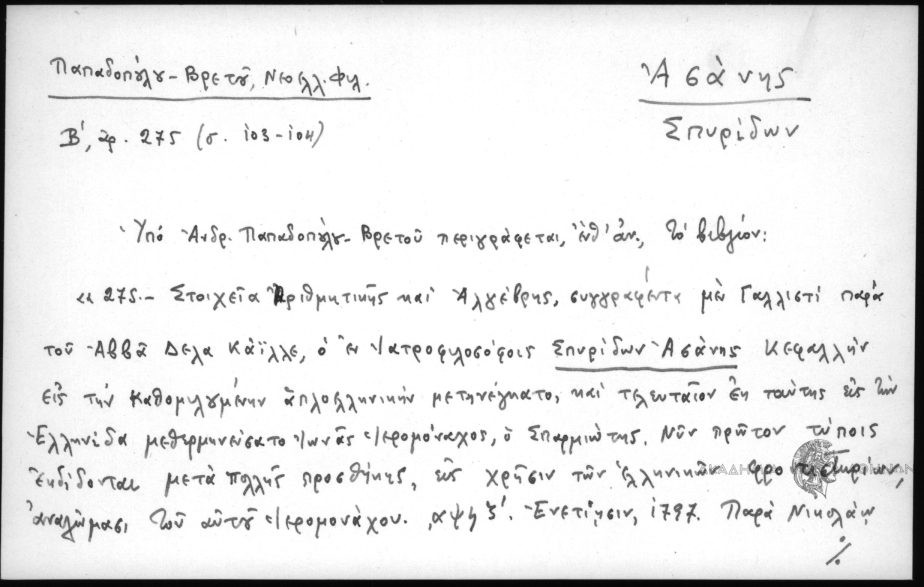 Παπαδοπούλου-Βρετοῦ, Νεοελλ. Φιλ.
Ἀσάνης
Β', ἀρ. 275 (σ. 103-104)
Σπυρίδων
Ὑπό Ἀνδρ. Παπαδοπούλου-Βρετοῦ περιγράφεται, ἔνθ' ἀν., τό βιβλίον:
«275.- Στοιχεῖα Ἀριθμητικῆς καί Ἀλγέβρης, συγγραφέντα μέν Γαλλιστί παρά
τοῦ Ἀββᾶ Δελα Καΐλλε, ὁ ἐν Ἰατροφιλοσόφοις Σπυρίδων Ἀσάνης Κεφαλλήν
εἰς τήν καθομιλουμένην ἁπλοελληνικήν μετηνέγκατο, καί τελευταῖον ἐκ ταύτης εἰς τήν
Ἑλληνίδα μεθερμηνεύσατο Ἰωνᾶς Ἱερομόναχος, ὁ Σπαρμιώτης. Νῦν πρῶτον τύποις
ἐκδίδονται μετά πολλῆς προσθήκης, εἰς χρῆσιν τῶν Ἑλληνικῶν φροντιστηρίων,
ἀναλώμασι τοῦ αὐτοῦ Ἱερομονάχου. ͵αψϟζ'. Ἐνετίησιν, 1797. Παρά Νικολάῳ
./.